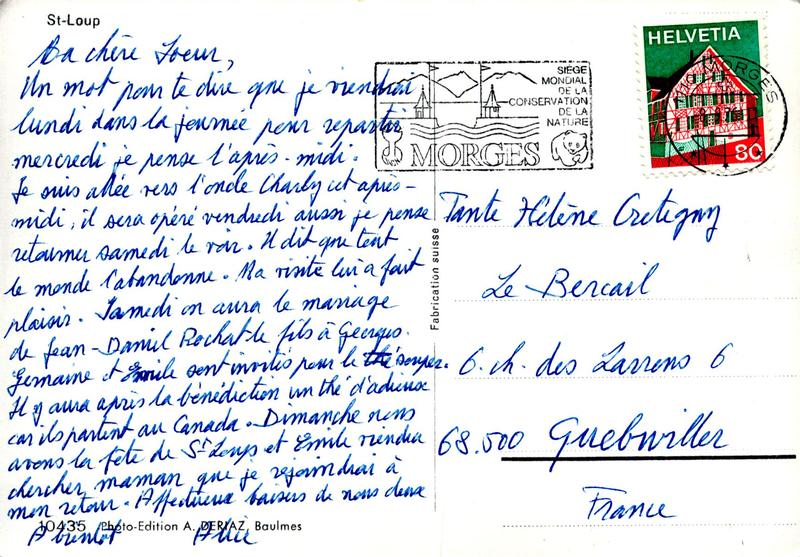 St-Loup
Ma chère Soeur,
Un mot pour te dire que je viendrai
lundi dans la journée pour repartir
mercredi je pense l'après-midi.
Je suis allée vers l'oncle Charly cet après-
midi, il sera opéré vendredi aussi je pense
retourner samedi le voir. Il dit que tout
le monde l'abandonne. Ma visite lui a fait
plaisir. Samedi on aura le mariage
de Jean-Daniel Rochat le fils à Georges.
Germaine et Emile sont invités pour le souper.
Il y aura après la bénédiction un thé d'adieux
car ils partent au Canada. Dimanche nous
avons la fête de St Loup et Emile viendra
chercher maman que je rejoindrai à
mon retour. Affectueux baisers de nous deux
A bientôt Alice
10435 Photo-Edition A. DERIAZ, Baulmes
Fabrication suisse
SIÈGE
MONDIAL
DE LA
CONSERVATION
DE LA
NATURE
MORGES
HELVETIA
80
1110 MORGES
Tante Hélène Cretegny
Le Bercail
6. ch. des Larrens 6
68.500 Guebwiller
France